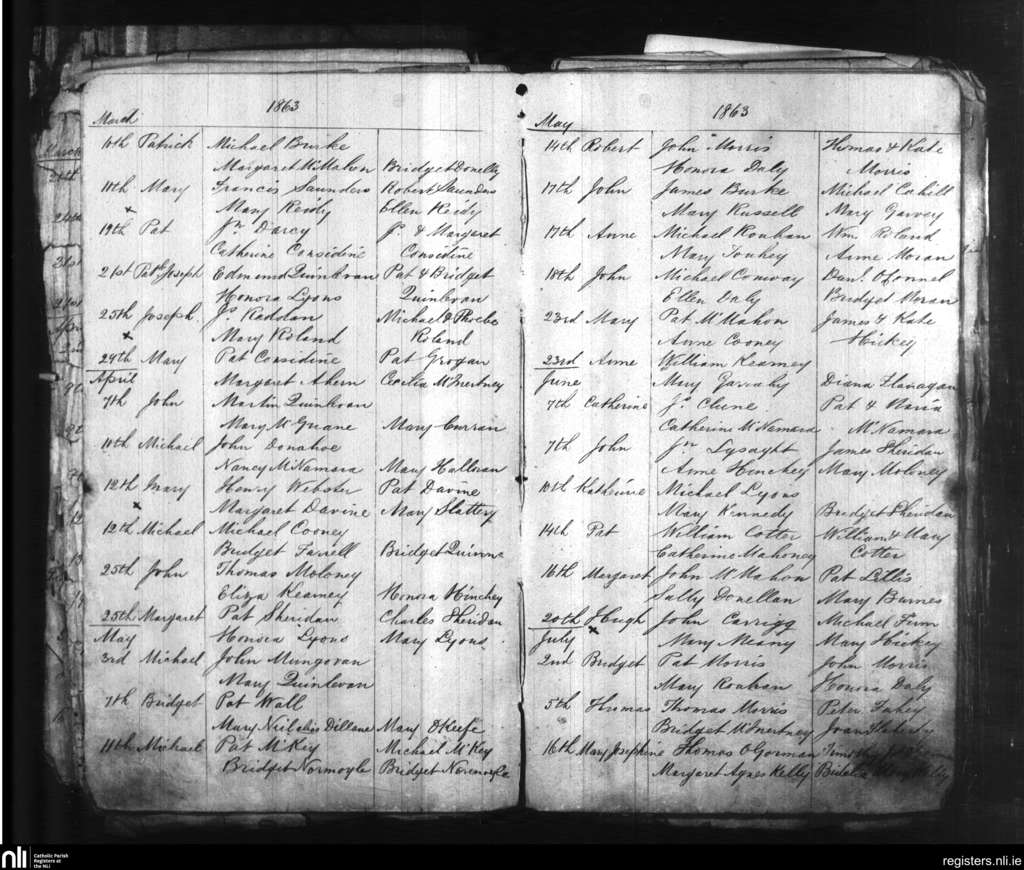 1863
March
10th Patrick Michael Burke
Margaret McMahon Bridget Donelly
11th Mary Francis Saunders Robert Saunders
x Mary Reidy Ellen Reidy
19th Pat Jn Darcy Jn & Margaret
Catherine Considine Considine
21st Patk Joseph Edmond Quinlivan Pat & Bridget
Honora Lyons Quinlivan
25th Joseph. Jn Raddan Michael & Phoebe
x Mary Roland Roland
24th Mary Pat Considine Pat Grogan
April Margaret Ahern Cecilia McInertney
7th John Martin Quinlivan
Mary McGuane Mary Curran
10th Michael John Donahoe
Nancy McNamara Mary Halloran
12th Mary Henry Webster Pat Davine
x Margaret Davine Mary Slattery
12th Michael Michael Cooney
Bridget Farrell Bridget Quinne
25th John Thomas Moloney
Eliza Kearney Honora Hinchey
25th Margaret Pat Sheridan Charles Sheridan
May Honora Lyons Mary Lyons.
3rd Michael John Mungovan
Mary Quinlevan
7th Bridget Pat Wall
Mary Neil alias Dillane Mary OKeefe
11th Michael Pat McKey Michael McKey
Bridget Normoyle Bridget Normoyle
1863
May
14th Robert John Morris Thomas & Kate
Honora Daly Morris
17th John James Burke Michael Cahill
Mary Russell Mary Garvey
17th Anne Michael Rouhan Wm Roland
Mary Touhey Anne Moran
18th John Michael Conway Danl. OConnel
Ellen Daly Bridget Moran
23rd Mary Pat McMahon James & Kate
Anne Cooney Hickey
23rd Anne William Kearney
June Mary Diana Flanagan
7th Catherine Jn Clune. Pat & Maria
Catherine McNamara McNamara
7th John Jn Lysaght James Sheridan
Anne Hinchey Mary Moloney
10th Katherine Michael Lyons
Mary Kennedy Bridget Sheridan
14th Pat William Cotter William & Mary
Catherine Mahoney Cotter
16th Margaret John McMahon Pat Lillis
Sally Donellan Mary Burnes
20th Hugh John Carrigg Michael Finn
July x Mary Meany Mary Hickey
2nd Bridget Pat Morris John Morris
Mary Rouhan Honora Daly
5th Thomas Thomas Morris Peter Fahey
Bridget McInertney Joan
16th Mary Josephine Thomas OGorman
Margaret Agnes Kelly Kelly
nli Catholic Parish
Registers at
the NLI
registers.nli.ie